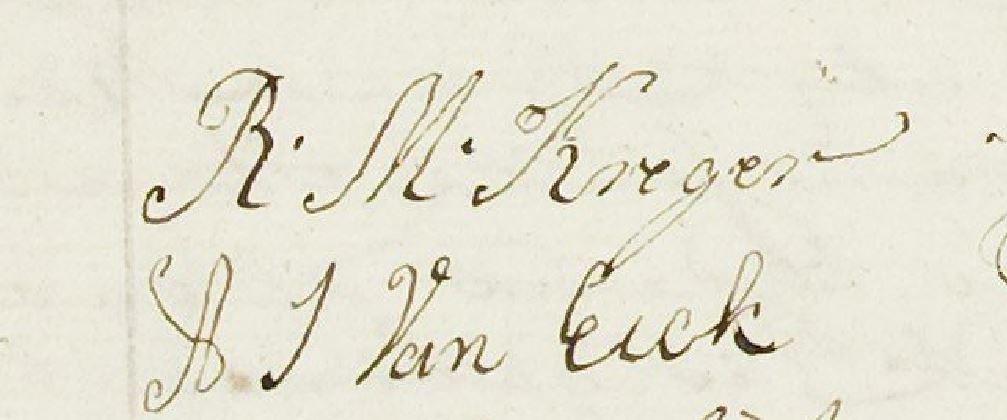 R. M. Kreger
A J Van Eick